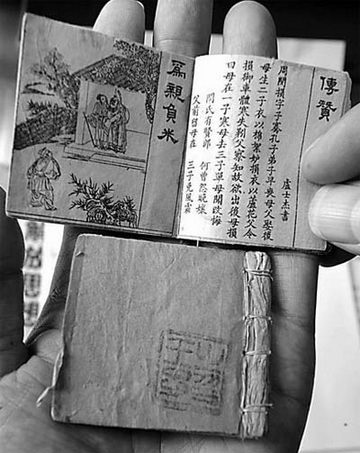 傳贊
盧士杰書
周閔損字子騫孔子弟子早喪母父娶後
母生二子衣以棉絮妒損衣以蘆花父令
損御車體寒失靷父察知故欲出後母損
曰母在一子寒母去三子單母聞改悔
閔氏有賢郎 何曾怨晚娘
父前留母在 三子免風霜
爲親負米